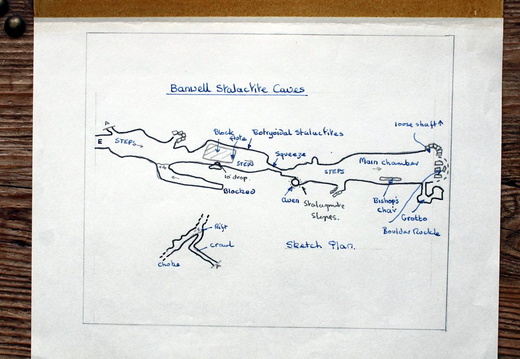 Banwell Stalactite Caves
loose shaft
Block
flute
Botryoidal Stalactites
E
STEPS
STEPS
Squeeze
Main chamber
STEPS
10' drop
Blocked
Aven
Stalagmite
Slopes.
Bishop's
chair
Grotto
Boulder Ruckle
Rift
crawl
choke
Sketch Plan.